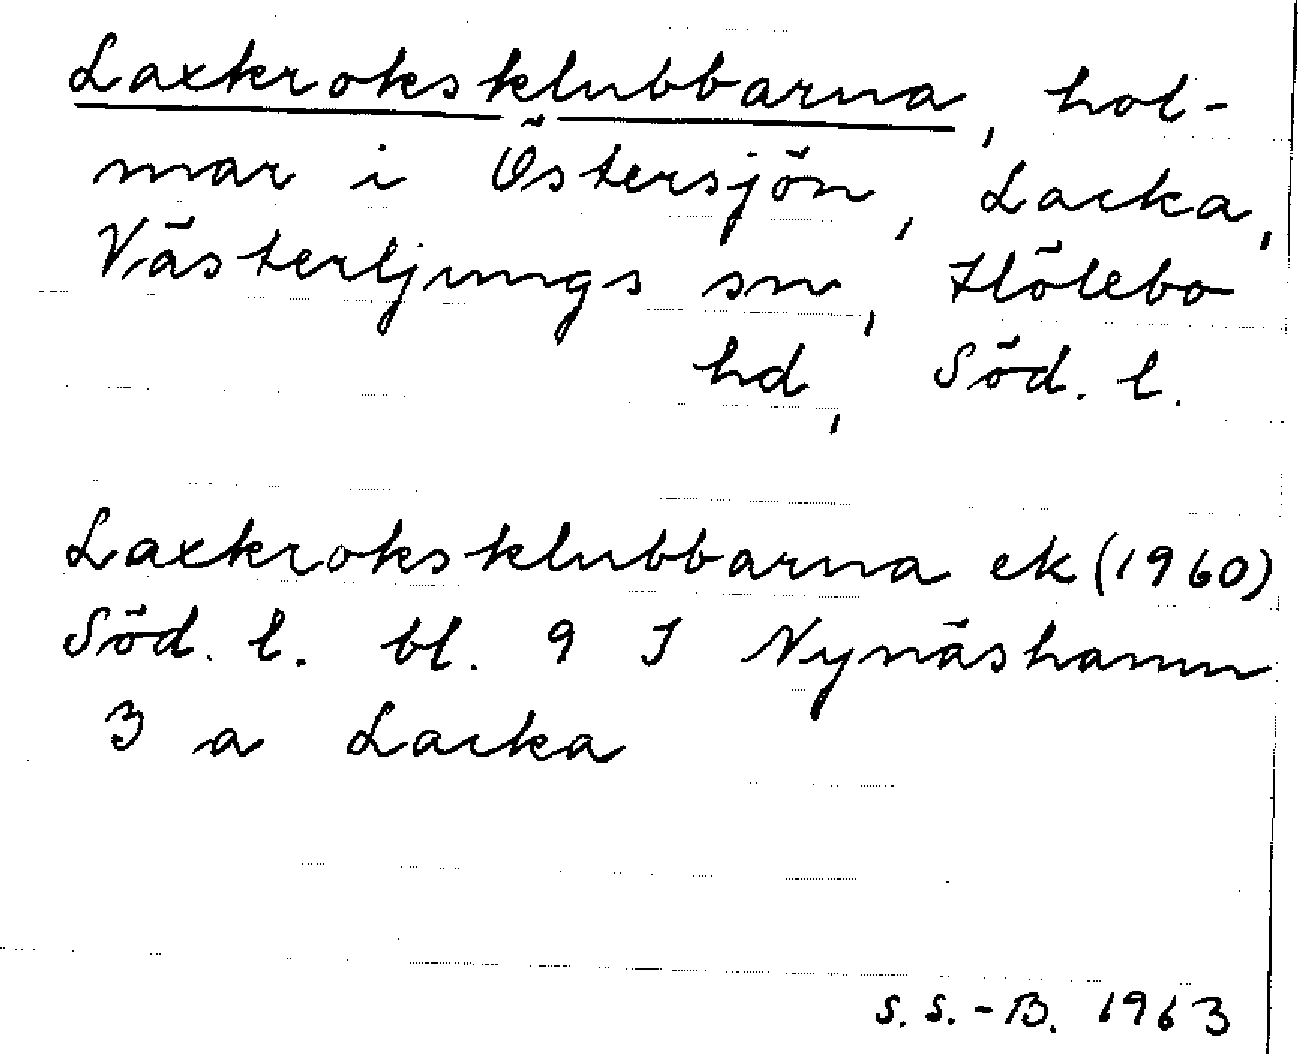 Laxkroksklubbarna, hol-
mar i Östersjön, Lacka,
Västerljungs sn, Hölebo
hd, Söd. l.
Laxkroksklubbarna ek (1960)
Söd. l. bl. 9 I Nynäshamn
3 a Lacka
S. S.-B. 1963